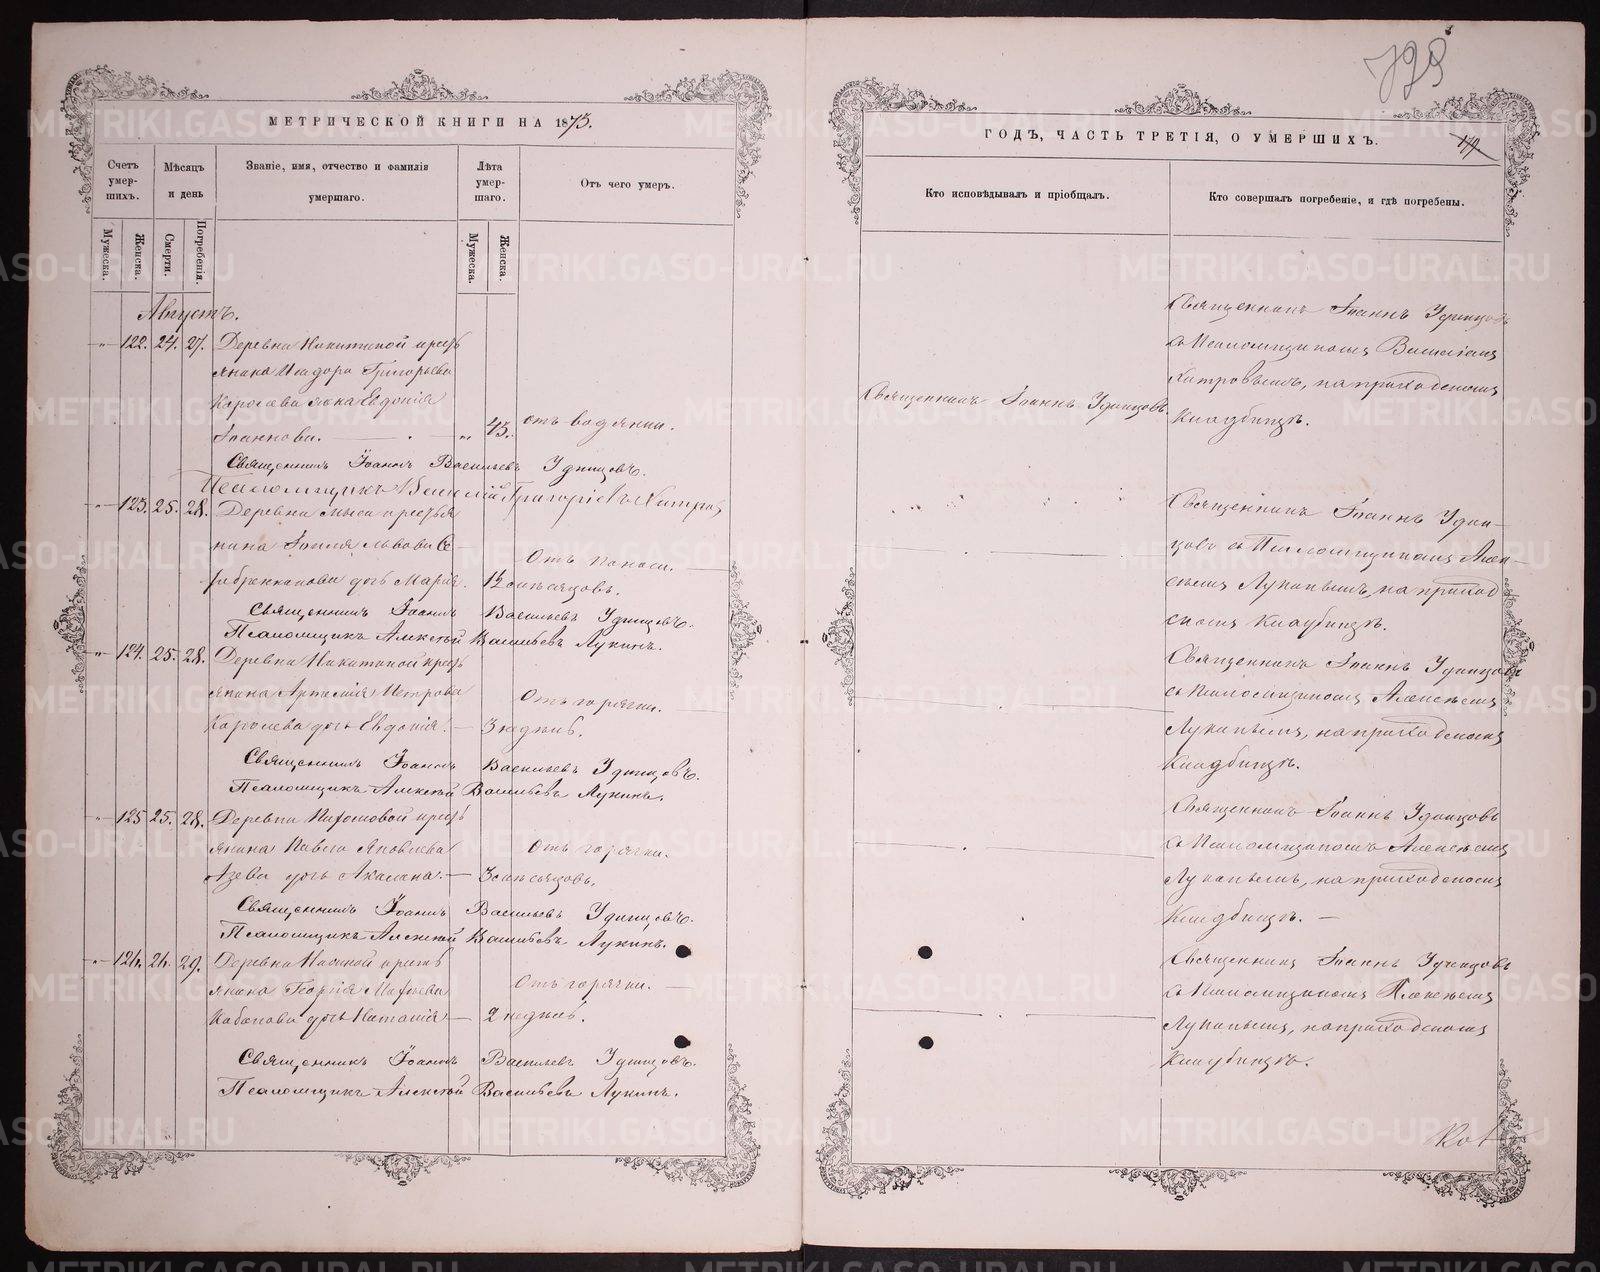 МЕТРИЧЕСКОЙ КНИГИ НА 1875.
Счетъ умер-шихъ.
Мѣсяцъ и день
Званіе, имя, отчество и фамилія умершаго.
Лѣта умер-шаго.
Отъ чего умеръ.
Мужеска.
Женска.
Смерти.
Погребенія.
Мужеска.
Женска.
Августъ.
122. 24. 27. Деревни Никитиной кресть
янина Исидора Григорьева
Королева жена Евдокія
Іоаннова. 45. отъ водянки.
Священникъ Іоаннъ Васильевъ Удинцовъ.
Псаломщикъ Василій Григоріевъ Хитровъ
123. 25. 28. Деревни Мыса крестья
нина Іоиля Львова Се
ребренникова дочь Марія. 12 мѣсяцовъ. Отъ поноса.
Священникъ Іоаннъ Васильевъ Удинцовъ.
Псаломщикъ Алексѣй Васильевъ Лукинъ.
124. 25. 28. Деревни Никитиной кресть
янина Артемія Петрова Отъ горячки.
Королева дочь Евдокія. 3 недѣль.
Священникъ Іоаннъ Васильевъ Удинцовъ.
Псаломщикъ Алексѣй Васильевъ Лукинъ.
125 25. 28. Деревни кресть
янина Павла Яковлева Отъ горячки.
дочь 3 мѣсяцовъ.
Священникъ Іоаннъ Васильевъ Удинцовъ.
Псаломщикъ Алексѣй Васильевъ Лукинъ.
126. 26. 29. Деревни кресть
янина Георгія Матѳеева Отъ горячки.
Кабакова дочь Наталія 2 недѣль.
Священникъ Іоаннъ Васильевъ Удинцовъ.
Псаломщикъ Алексѣй Васильевъ Лукинъ.
799
ГОДЪ, ЧАСТЬ ТРЕТІЯ, О УМЕРШИХЪ.
Кто исповѣдывалъ и пріобщалъ.
Кто совершалъ погребеніе, и гдѣ погребены.
Священникъ Іоаннъ Удинцовъ.
Священникъ Іоаннъ Удинцовъ
съ Псаломщикомъ Василіемъ
Хитровымъ, на приходскомъ
Кладбищѣ.
Священникъ Іоаннъ Удин-
цовъ съ Псаломщикомъ Алек-
сѣемъ Лукинымъ, на приход
скомъ Кладбищѣ.
Священникъ Іоаннъ Удинцовъ
съ Псаломщикомъ Алексѣемъ
Лукинымъ, на приходскомъ
Кладбищѣ.
Священникъ Іоаннъ Удинцовъ
съ Псаломщикомъ Алексѣемъ
Лукинымъ, на приходскомъ
Кладбищѣ.
Священникъ Іоаннъ Удинцовъ
съ Псаломщикомъ Алексѣемъ
Лукинымъ, на приходскомъ
Кладбищѣ.
METRIKI.GASO-URAL.RU